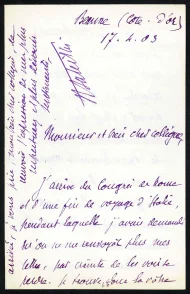 Beaune (Côte-d'or)
17. 4. 03
Monsieur et bien cher collègue,
J'arrive du Congrès de Rome
et d'une fin de voyage d'Italie,
pendant laquelle j'avais demandé
qu'on ne m'envoyât plus mes
lettres, par crainte de les voir se
perdre. Je trouve, donc la vôtre
arrivée, je vous prie, monsieur et cher collègue, de
recevoir l'expression de mes plus
sentiments